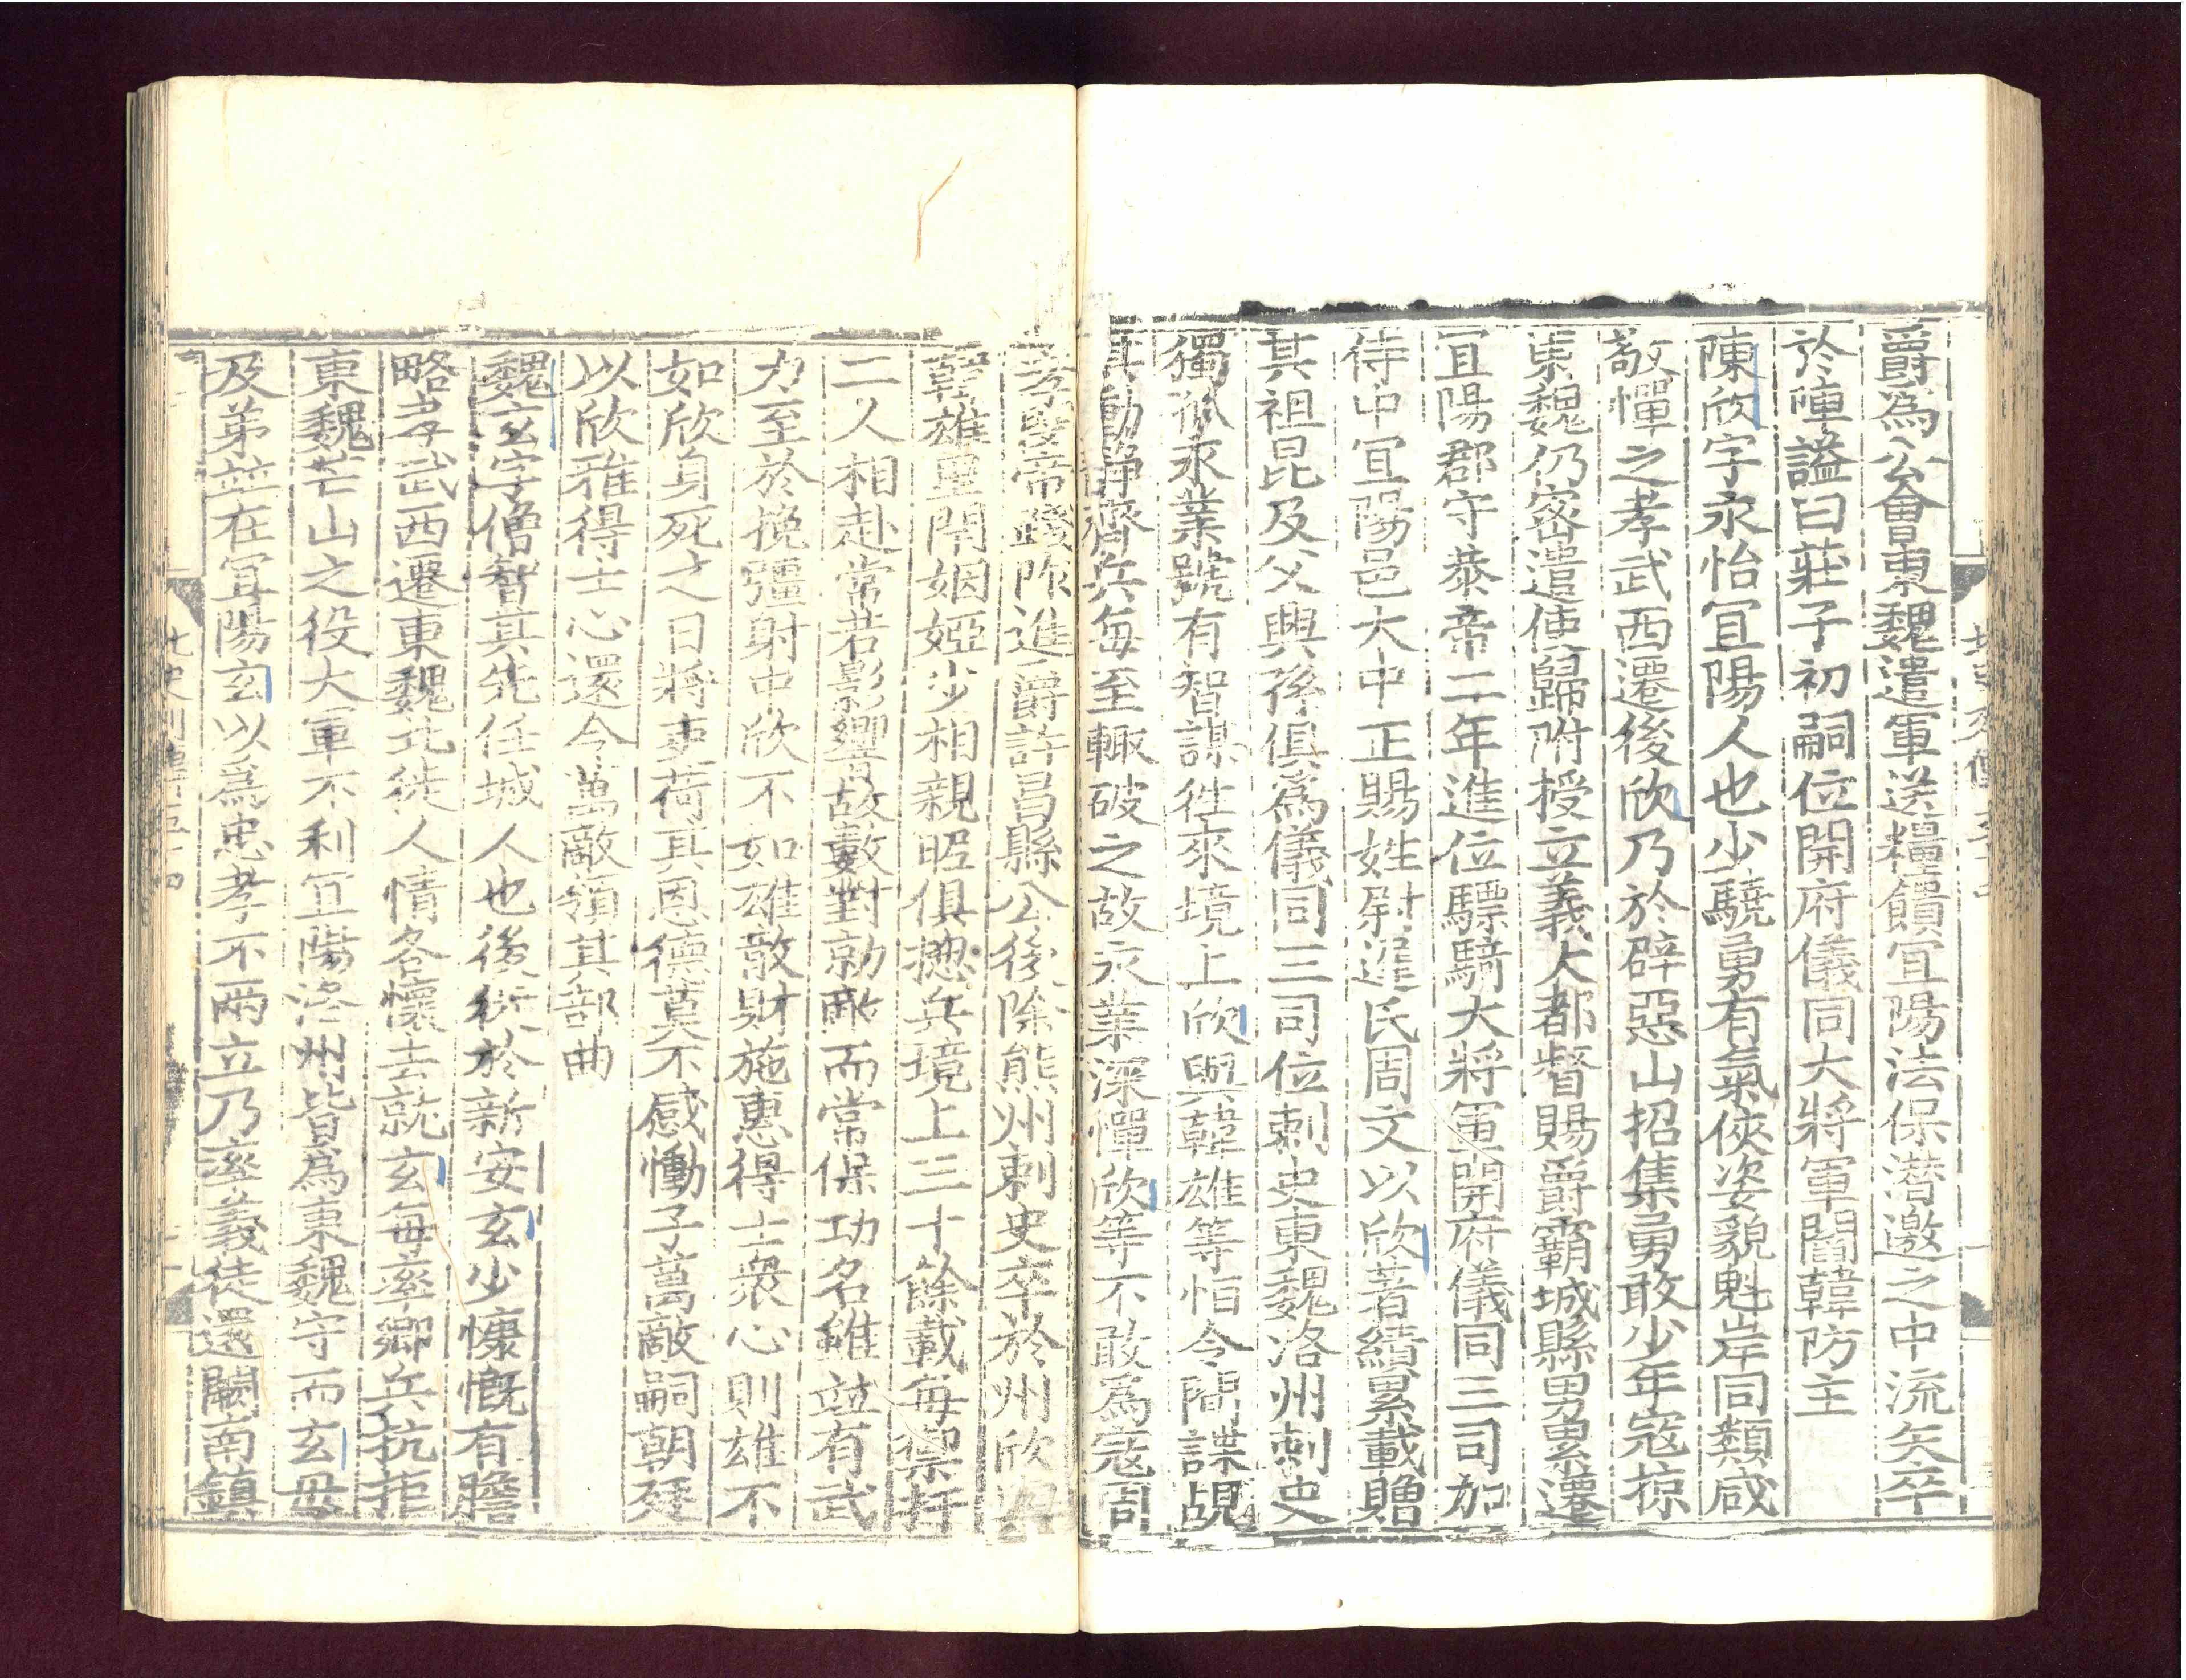 爵為公會東魏遣軍送糧饋宜陽法保潛邀之中流矢卒
於陣謚曰莊子初嗣位開府儀同大將軍閻韓防主
陳欣字永怡宜陽人也少驍勇有氣俠姿貌魁岸同類咸
敬憚之孝武西遷後欣乃於辟惡山招集勇敢少年寇掠
東魏仍密遣使歸附授立義大都督賜爵霸城縣男累遷
宜陽郡守恭帝二年進位驃騎大將軍開府儀同三司加
侍中宜陽邑大中正賜姓尉遲氏周文以欣著績累載贈
其祖昆及父興孫俱為儀同三司位刺史東魏洛州刺史
獨孤永業號有智謀往來境上欣與韓雄等恒令間諜覘
其動靜齊兵每至輙破之故永業深憚欣等不敢為寇周
孝閔帝踐阼進爵許昌縣公後除熊州刺史卒於州欣與
韓雄里閈姻婭少相親昵俱揔兵境上三十餘載每禦扞
二人相赴常若影響故數對勍敵而常保功名雖並有武
力至於挽彊射中欣不如雄散財施惠得士衆心則雄不
如欣身死之日將吏荷其恩德莫不感慟子萬敵嗣朝廷
以欣雅得士心還令萬敵領其部曲
魏玄字僧智其先任城人也後徙於新安玄少慷慨有膽
略孝武西遷東魏北徙人情各懷去就玄每率鄉兵抗拒
東魏芒山之役大軍不利宜陽洛州皆為東魏守而玄母
及弟並在宜陽玄以為忠孝不兩立乃率義徒還關南鎮
北史列傳五十四